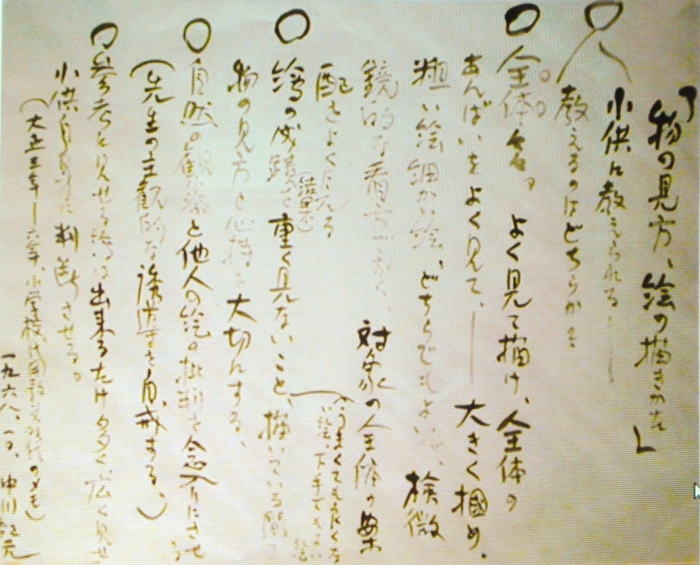 「物の見方、絵の描きかた」
小供に教えられる
教えるのはどちらか
○全体を。よく見て描け、全体の
あんばいをよく見て、大きく掴め。
粗い絵細かい絵、どちらでもよいが、検微
鏡的な看方でなく、対象の全体の要
配をよく見る
(うまくても良くない絵、下手でもよい絵
○繪の成績を重く見ないこと、描いている間の
物の見方と心持を大切にする、
○自然の観察と他人の絵の批判を念入りにさせる
(先生の主観的な誘導を自戒する。)
○参考に見せる絵は出来るだけ多く広く見せ
小供自身に判断させる。
(大正三年―六年、小学校代用教員時代のメモ)
一九六八、一〇、中川紀元